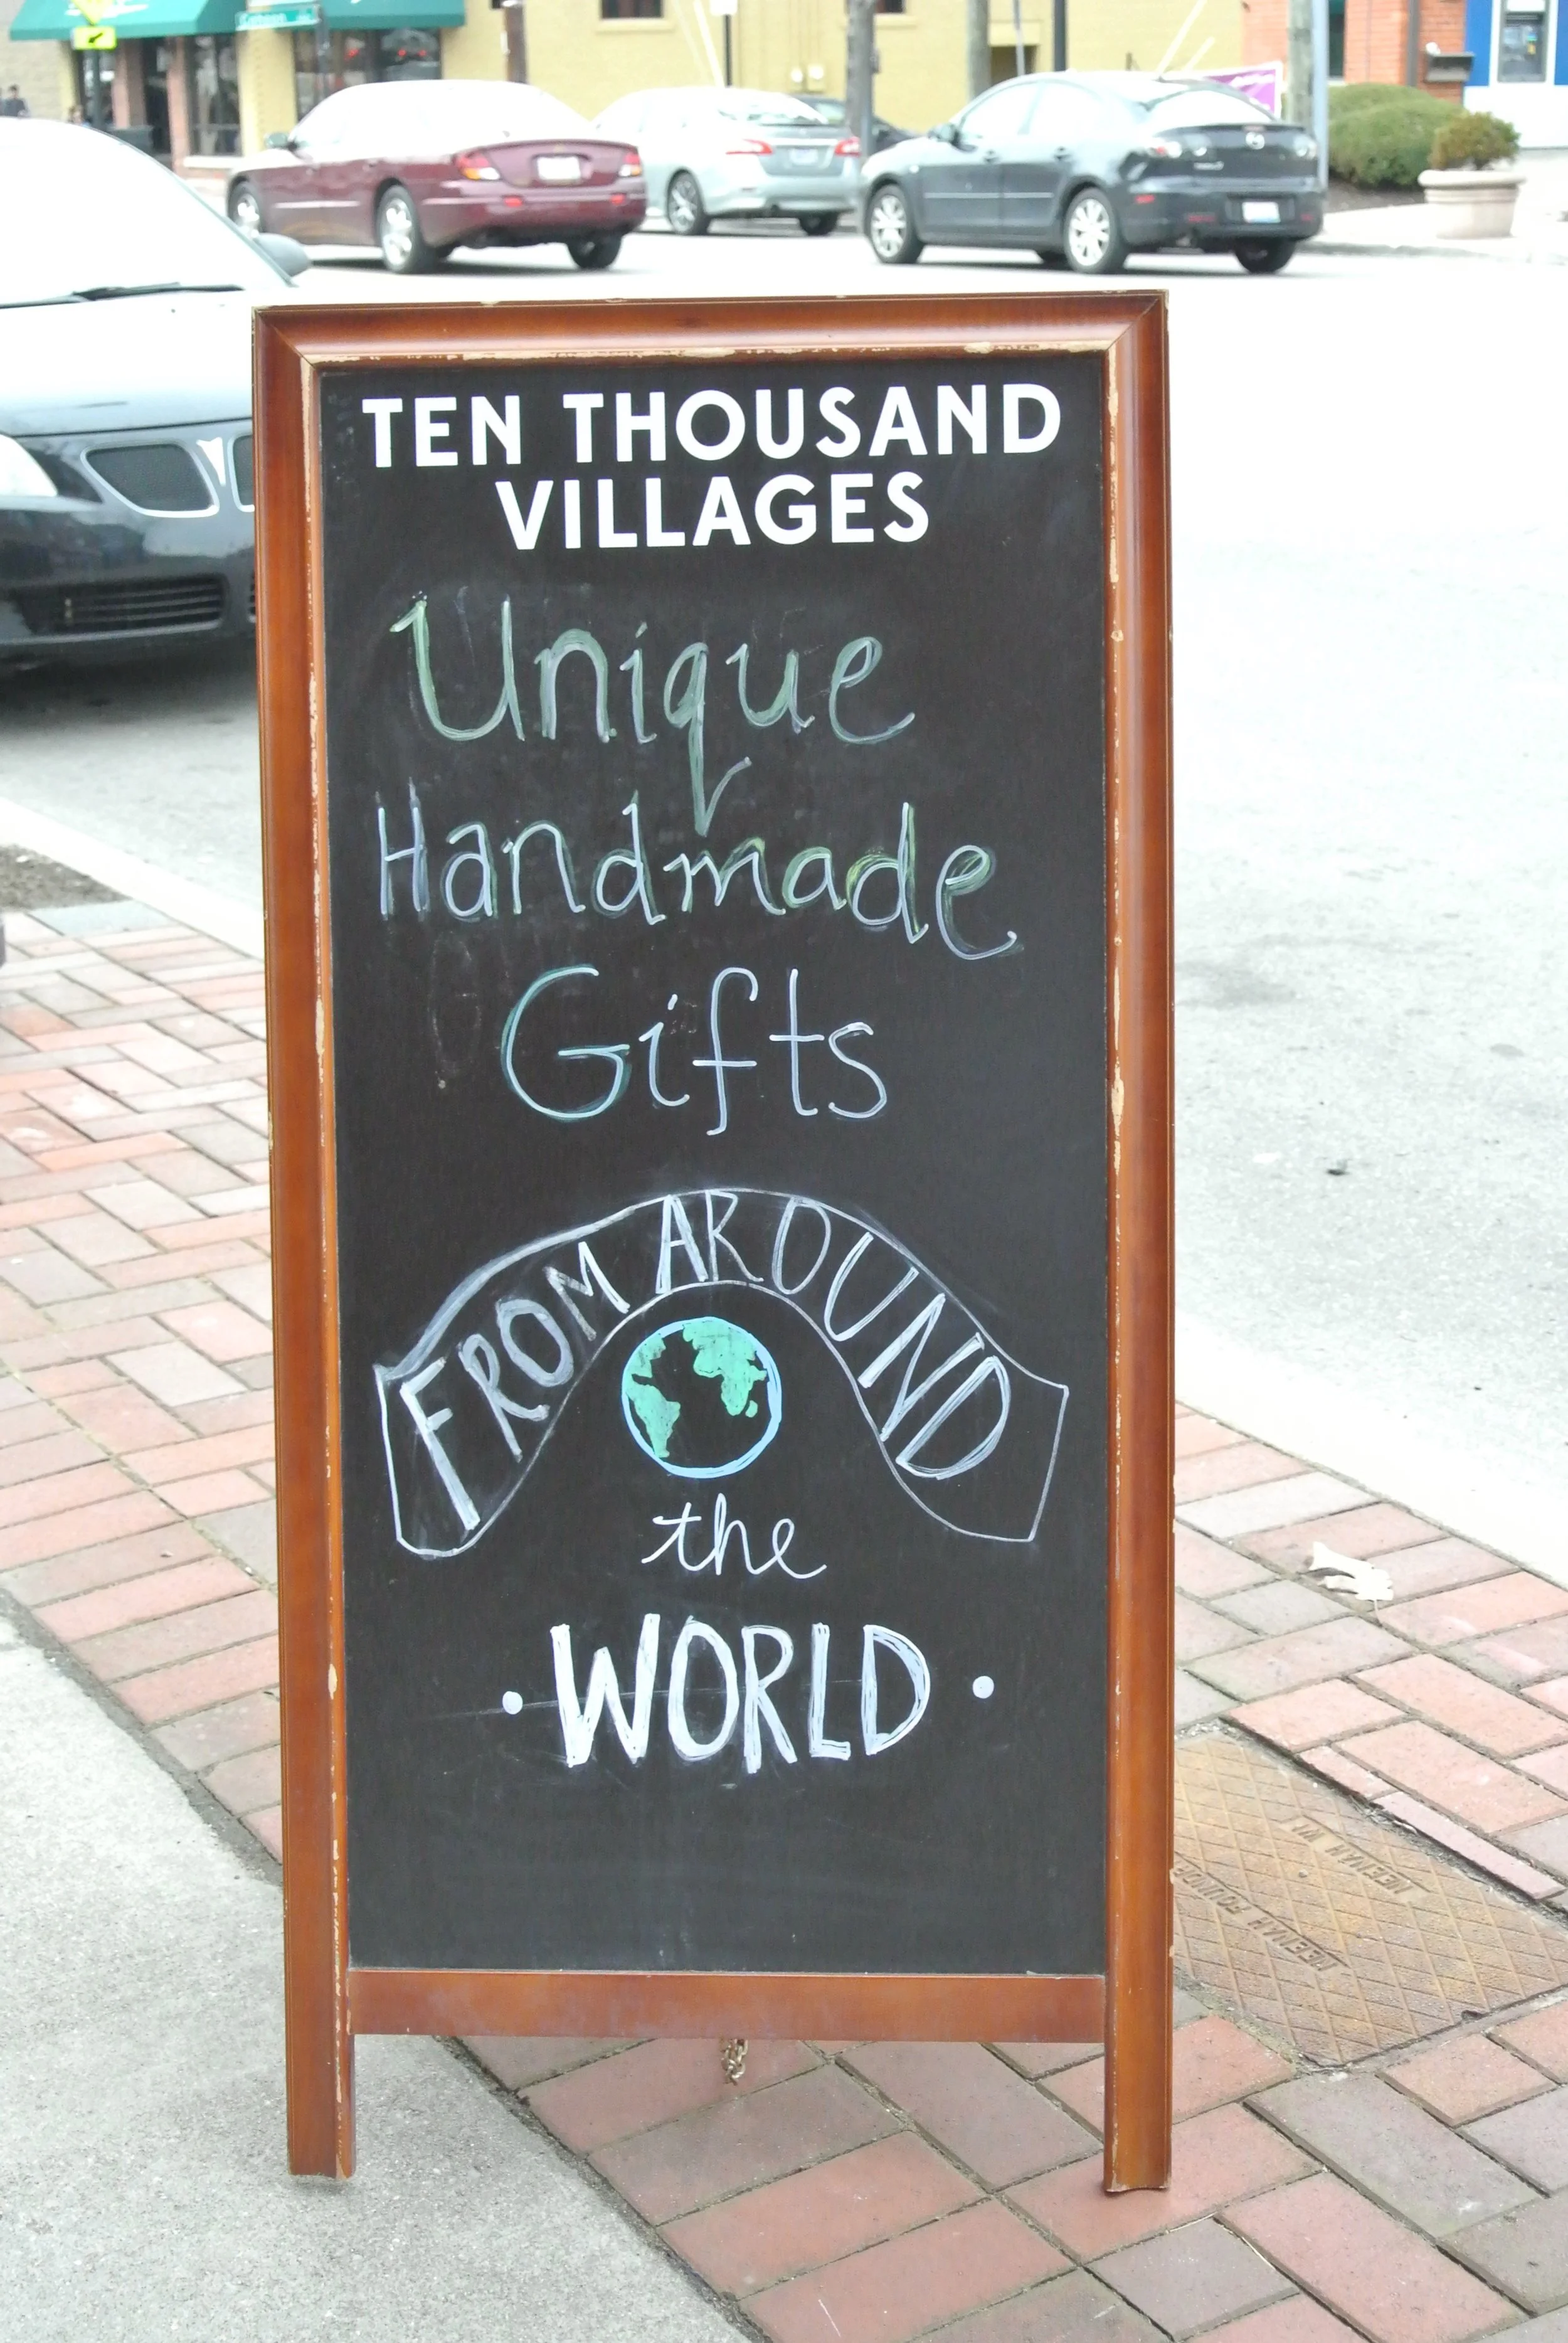 TEN THOUSAND
VILLAGES
Unique
Handmade
Gifts
FROM AROUND
the
• WORLD •
NEENAH FOUNDRY
NEENAH WI